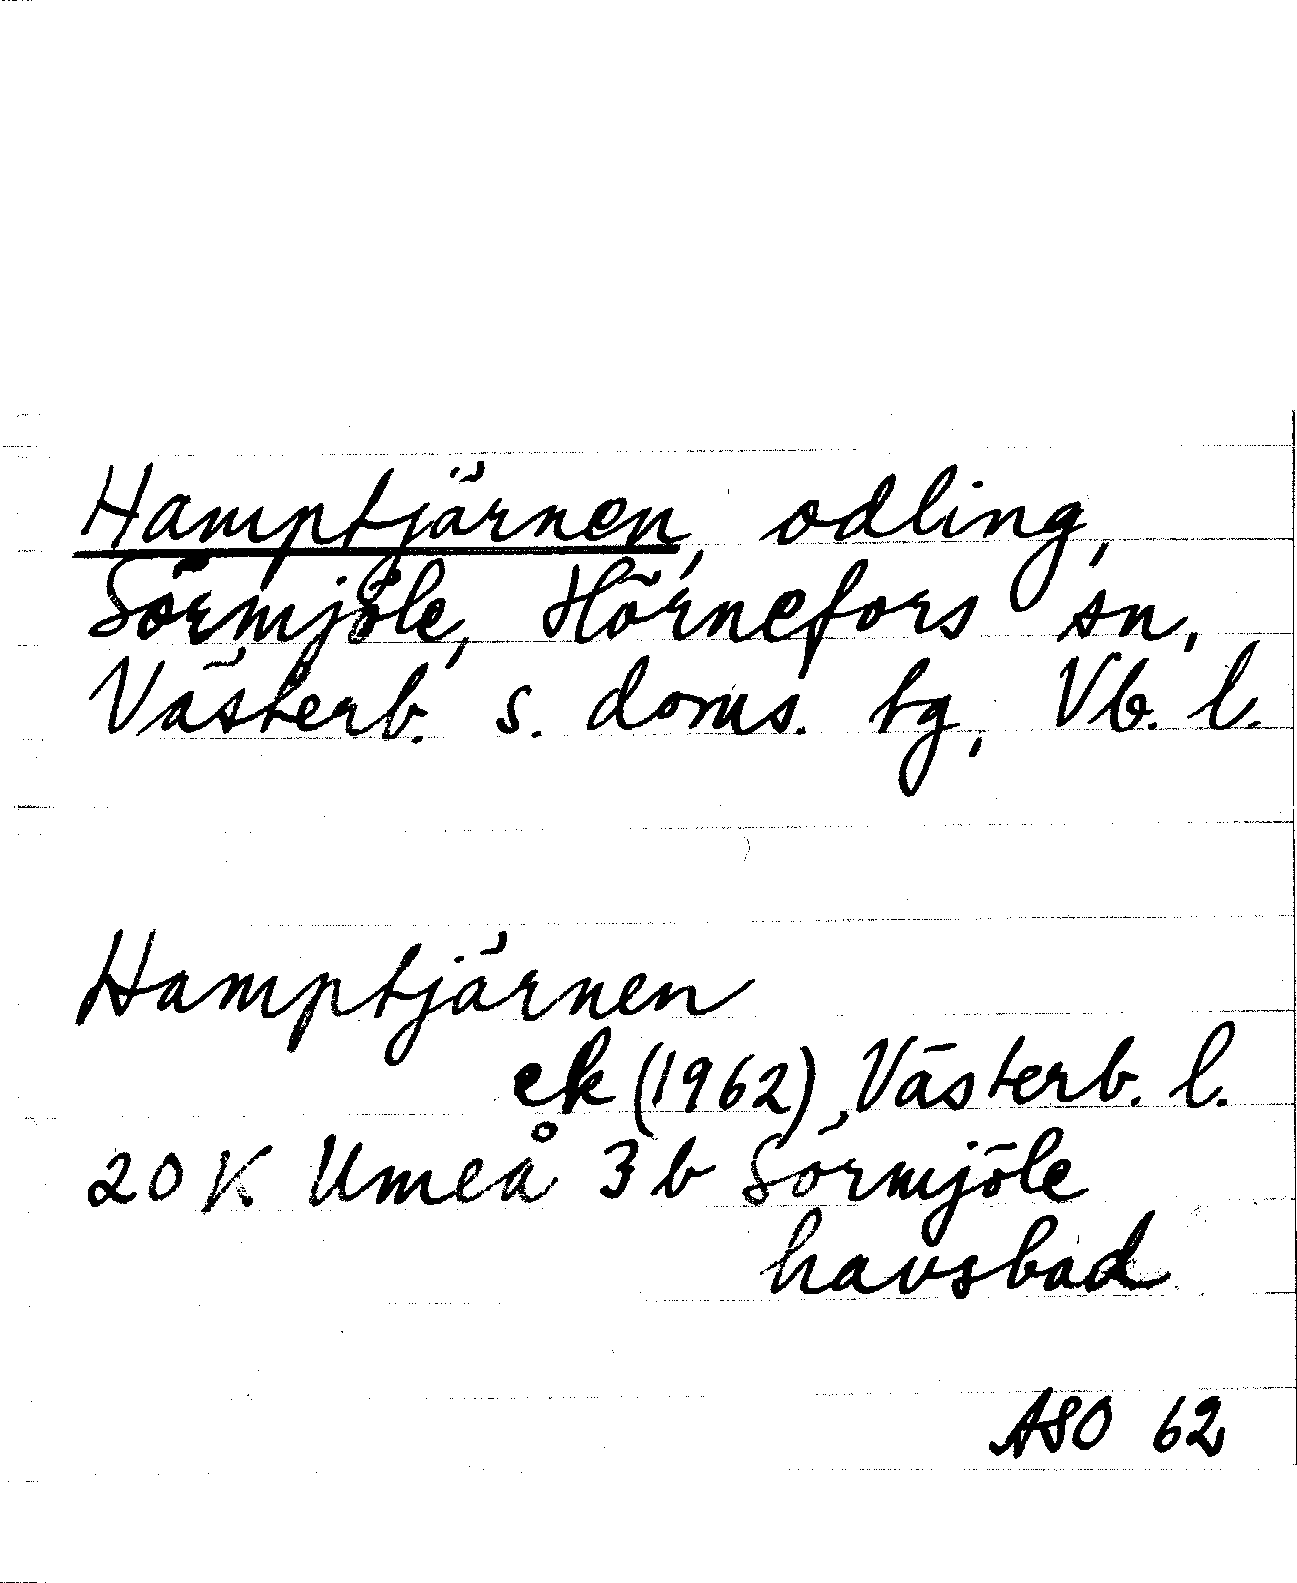 Hamptjärnen, odling,
Sörmjöle, Hörnefors sn,
Västerb. s. doms. tg, Vb. l.
Hamptjärnen
ek (1962), Västerb. l.
20 K Umeå 3 b Sörmjöle
havsbad
ASO 62